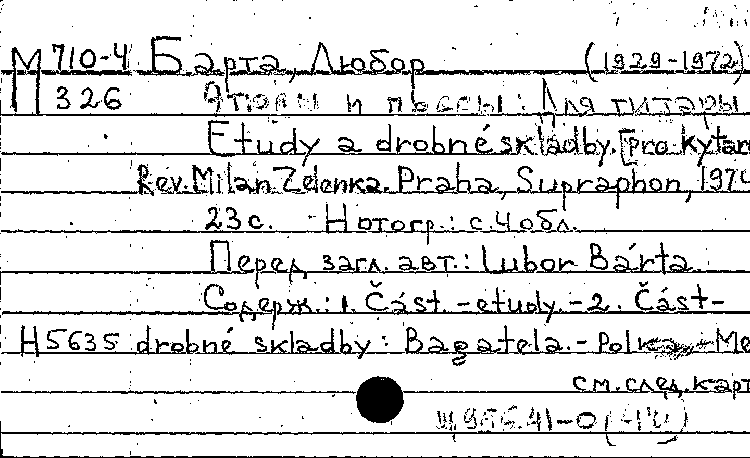 М 710-4 Барта, Любор (1929-1972)
326 Этюды и пьессы: Для гитары
Etudy a drobné skladby. [pro kytaru
Rev. Milan Zelenka. Praha, Supraphon, 1974
23 с. Нотогр.: с. 4 обл.
Перед загл. авт.: Lubor Bárta
Содерж.: 1. Část. - etudy. - 2. Část -
Н5635 drobné skladby: Bagatela. - Polka - Me
см. след. карт
Щ956.41-0